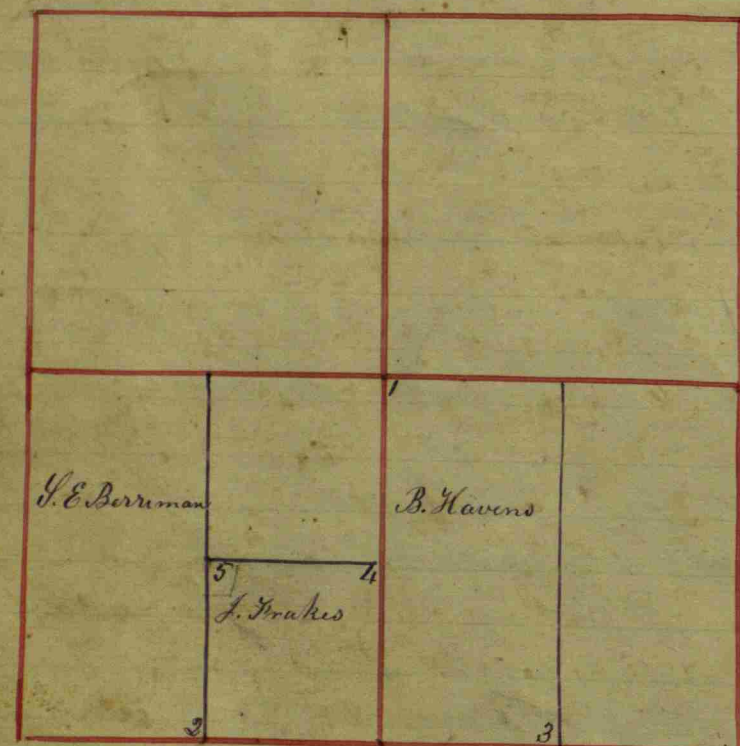 1
S. E Berriman
B. Havens
5
4
J. Frakes
2
3